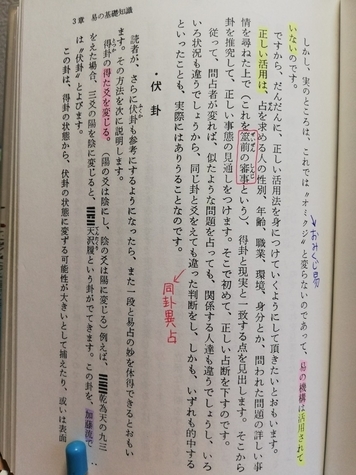 3章 易の基礎知識
しかし、実のところは、これでは〝オミクジ〟と変らないのであって、易の機構は活用されて
いないのです。
ですから、だんだんに、正しい活用法を身につけていくようにして頂きたいとおもいます。
正しい活用は、占を求める人の性別、年齢、職業、環境、身分とか、問われた問題の詳しい事
情を尋ねた上で(これを筮前の審事という)、得卦と現実と一致する点を見出します。そこから
卦を推究して、正しい事態の見通しをつけます。そこで初めて、正しい占断を下すのです。
従って、問占者が変れば、似たような問題を占っても、関係する人達も違うでしょうし、いろ
いろ状況も違うでしょうから、同じ卦と爻をえても違った判断をし、しかも、いずれも的中する
といったことも、実際にはありうることなのです。
おみくじ易
同卦異占
・伏卦
読者が、さらに伏卦も参考にするようになったら、また一段と易占の妙を体得できるとおもい
ます。その方法を次に説明します。
得卦の得た爻を変じる。(陽の爻は陰にし、陰の爻は陽に変じる)例えば、䷀乾為天の九三
をえた場合、三爻の陽を陰に変じると、䷉天沢履という卦がでてきます。この卦を、加藤流で
は〝伏卦〟とよびます。
この伏卦は、得卦の状態から、伏卦の状態に変ずる可能性が大きいとして捕えたり、或いは表面